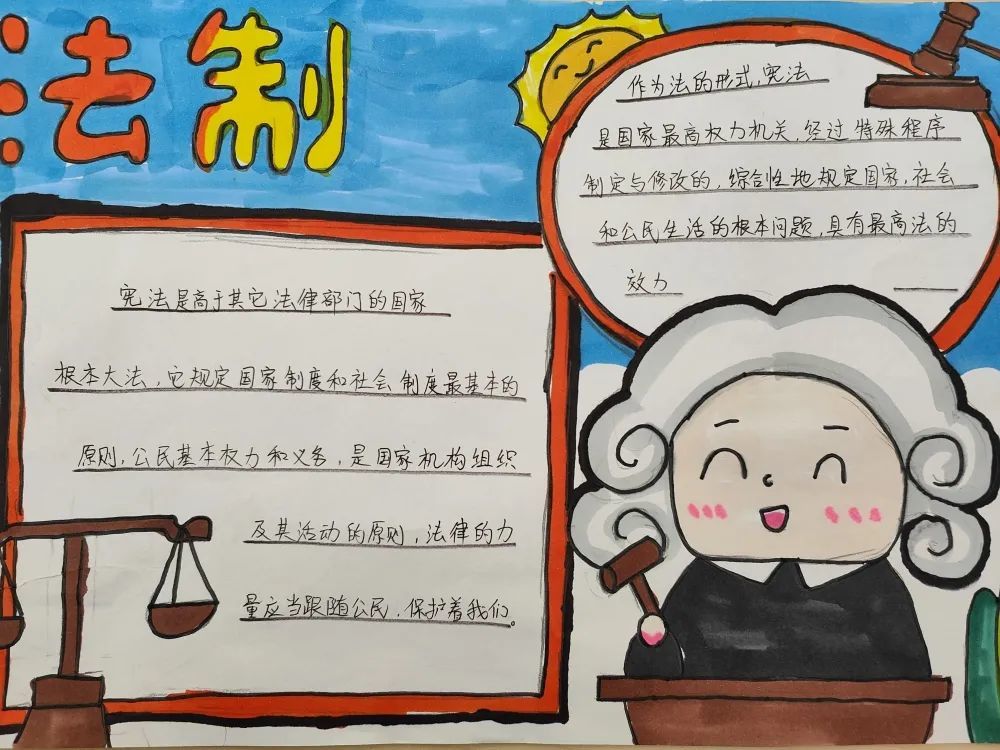 法制
作为法的形式,宪法
是国家最高权力机关,经过特殊程序
制定与修改的,综合性地规定国家,社会
和公民生活的根本问题,具有最高法的
效力
宪法是高于其它法律部门的国家
根本大法,它规定国家制度和社会制度最基本的
原则,公民基本权力和义务,是国家机构组织
及其活动的原则,法律的力
量应当跟随公民,保护着我们。